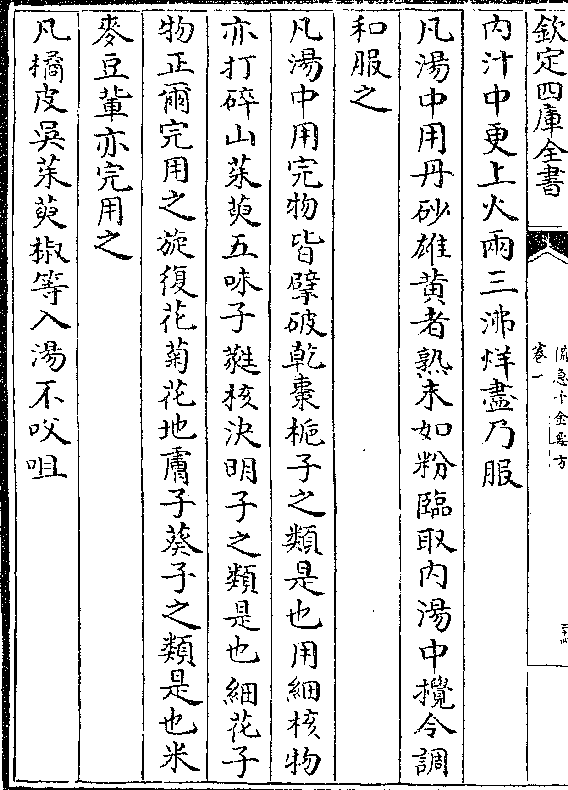 欽定四庫全書
備急千金要方
卷一
內汁中更上火兩三沸烊盡乃服
凡湯中用丹砂雄黃者熟末如粉臨取內湯中攪令調
和服之
凡湯中用完物皆擘破乾棗梔子之類是也用細核物
亦打碎山茱萸五味子蕤核決明子之類是也細花子
物正爾完用之旋復花菊花地膚子葵子之類是也米
麥豆輩亦完用之
凡橘皮吳茱萸椒等入湯不㕮咀